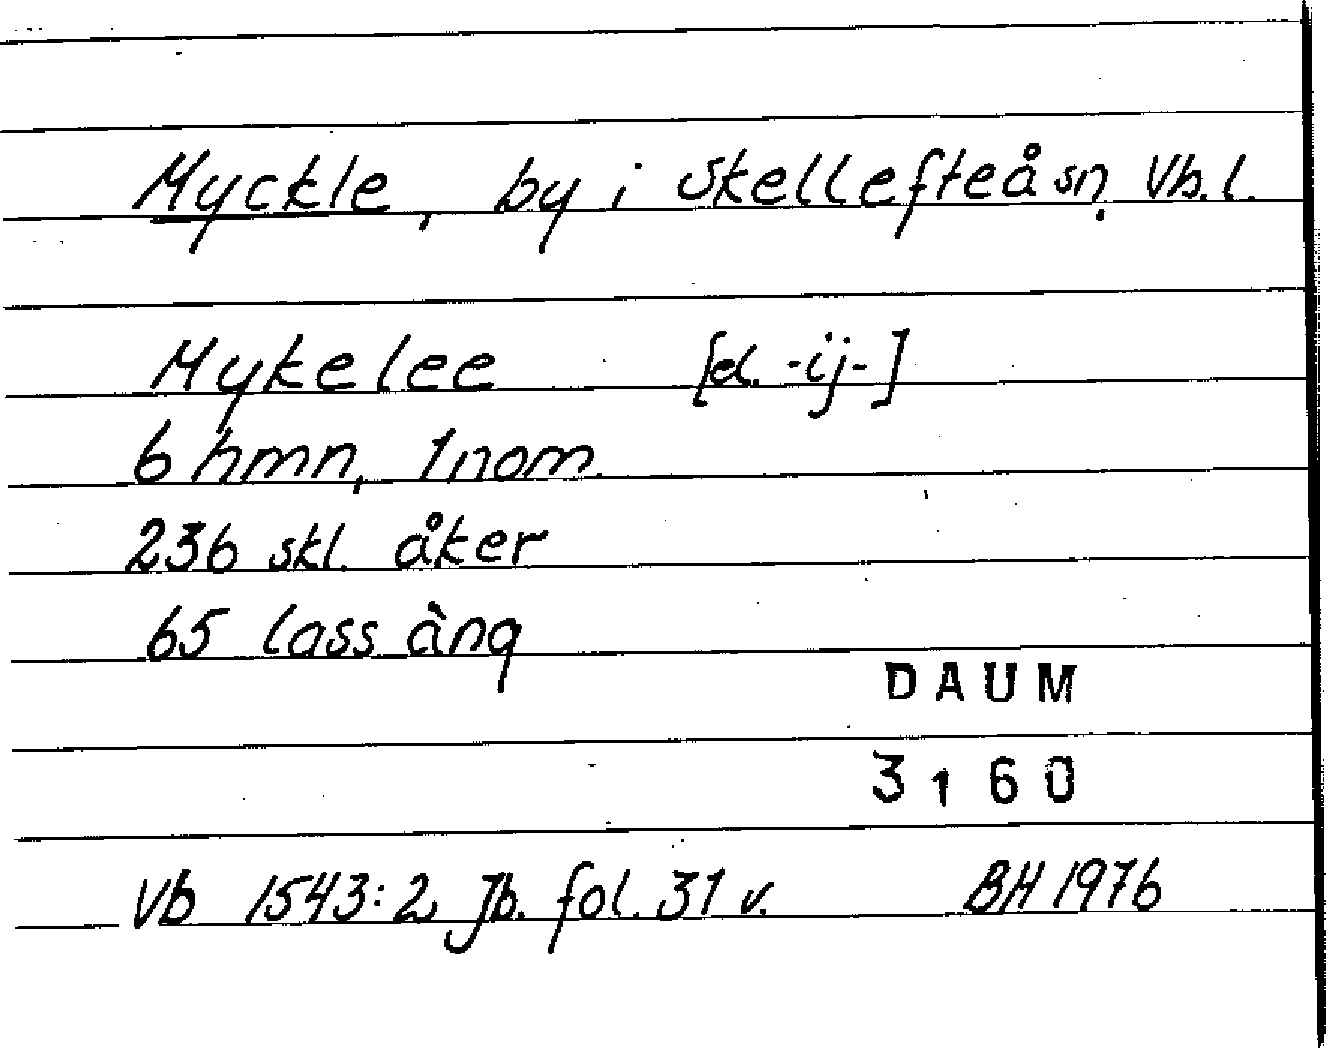 Myckle, by i Skellefteå sn, Vb. l.
Mykelee [el. -ij-]
6 hmn, 1 nom
236 skl. åker
65 lass äng
DAUM
3160
Vb 1543:2, Jb. fol. 31 v. BH 1976